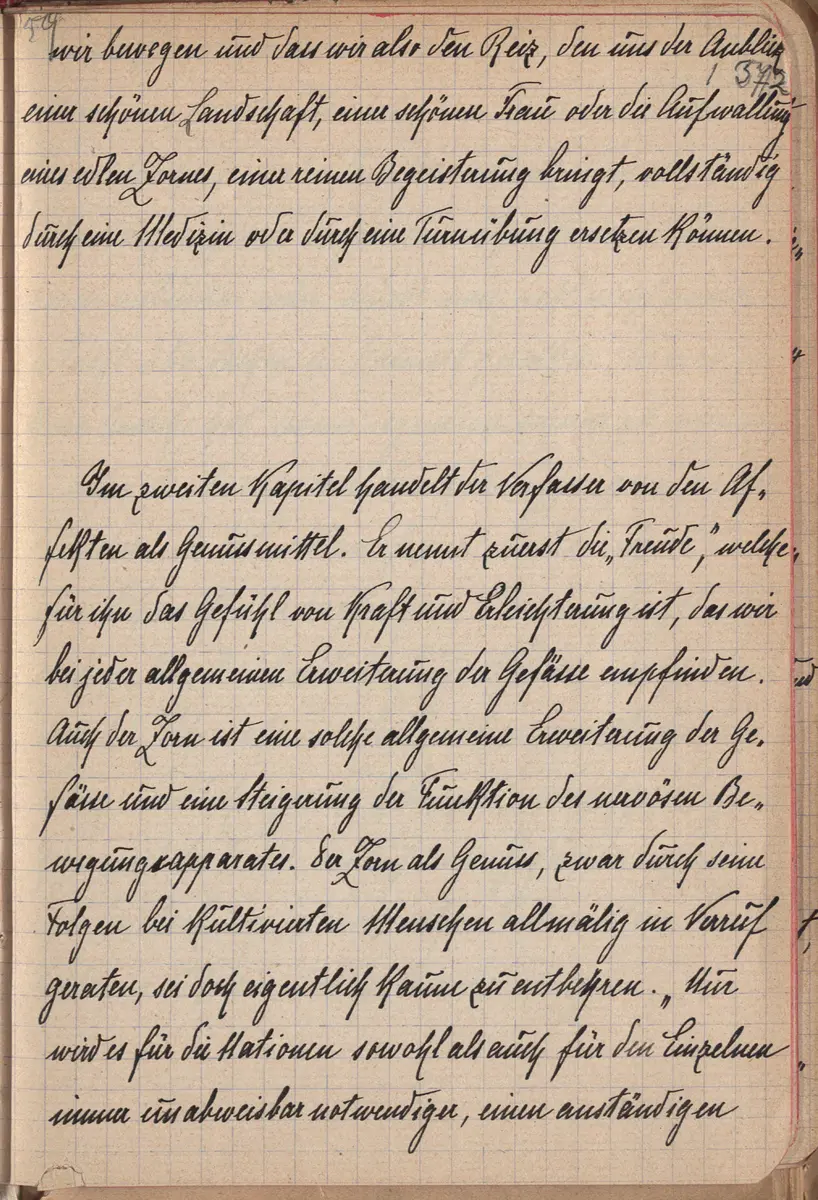 wir bewegen und dass wir also den Reiz, den uns der Anblick
372
einer schönen Landschaft, einer schönen Frau oder die Aufwallung
eines edlen Zornes, einer reinen Begeisterung bringt, vollständig
durch eine Medizin oder durch eine Turnübung ersetzen können.
Im zweiten Kapitel handelt der Verfasser von den Af-
fekten als Genussmittel. Er nennt zuerst die „Freude", welche
für ihn das Gefühl von Kraft und Erleichterung ist, das wir
bei jeder allgemeinen Erweiterung der Gefässe empfinden.
Auch der Zorn ist eine solche allgemeine Erweiterung der Ge-
fässe und eine Steigerung der Funktion des nervösen Be-
wegungsapparates. Der Zorn als Genuss, zwar durch seine
Folgen bei kultivierten Menschen allmälig in Verruf
geraten, sei doch eigentlich kaum zu entbehren. „Nur
wird es für die Nationen sowohl als auch für den Einzelnen
immer unabweisbar notwendiger, einen anständigen